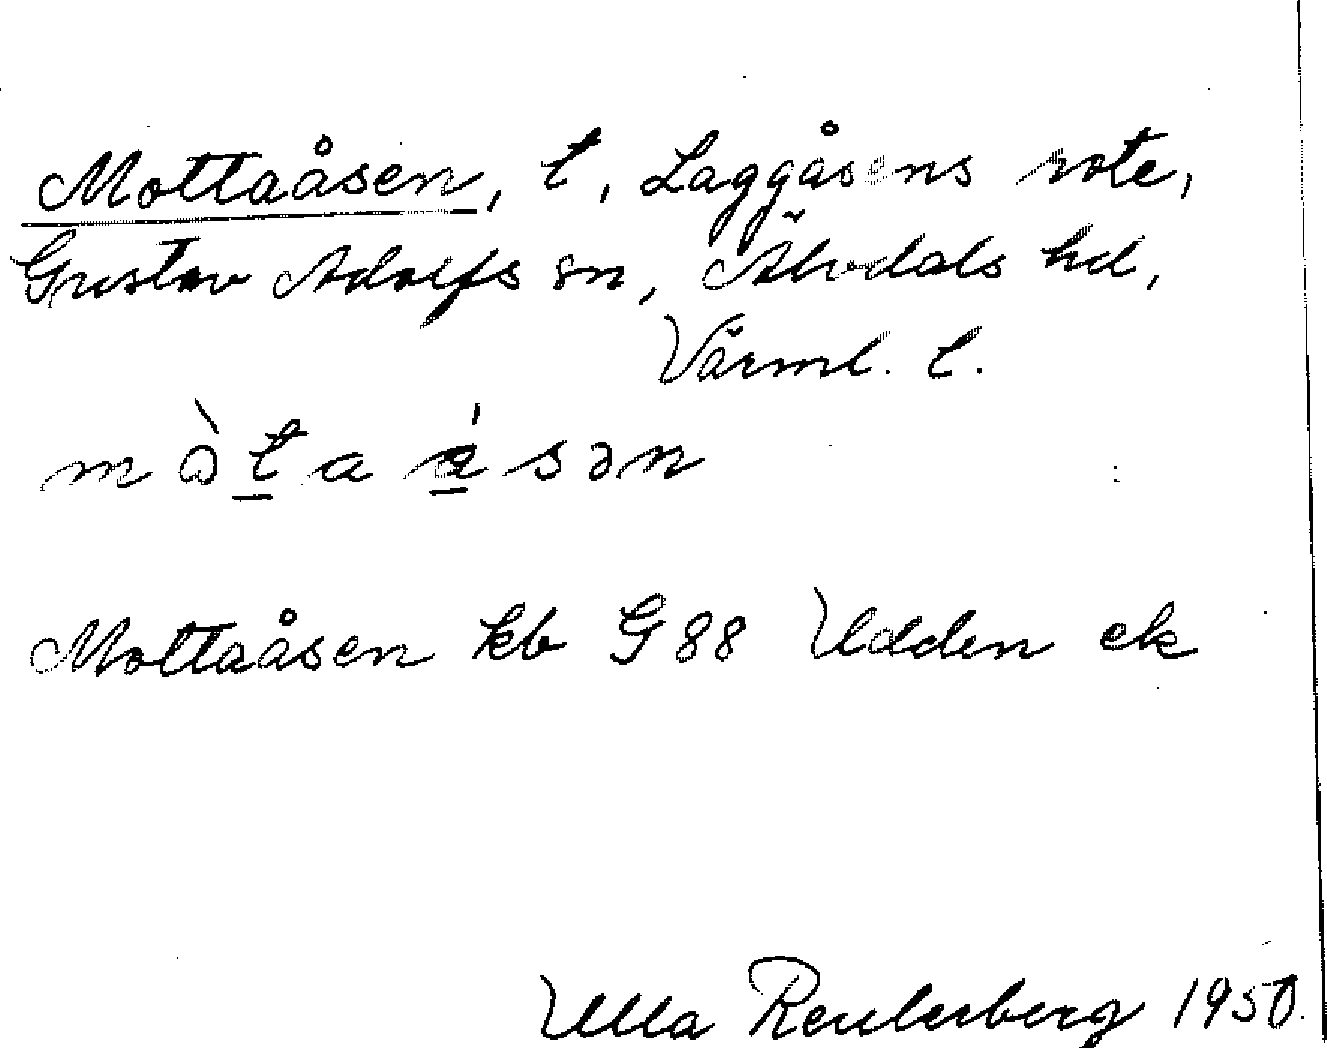 Mottaåsen, t, Laggåsens rote,
Gustav Adolfs sn, Älvdals hd,
Värml. l.
m ɔ̀ t a ǻ s ə n
Mottaåsen kb G 88 Udden ek
Ulla 1950.